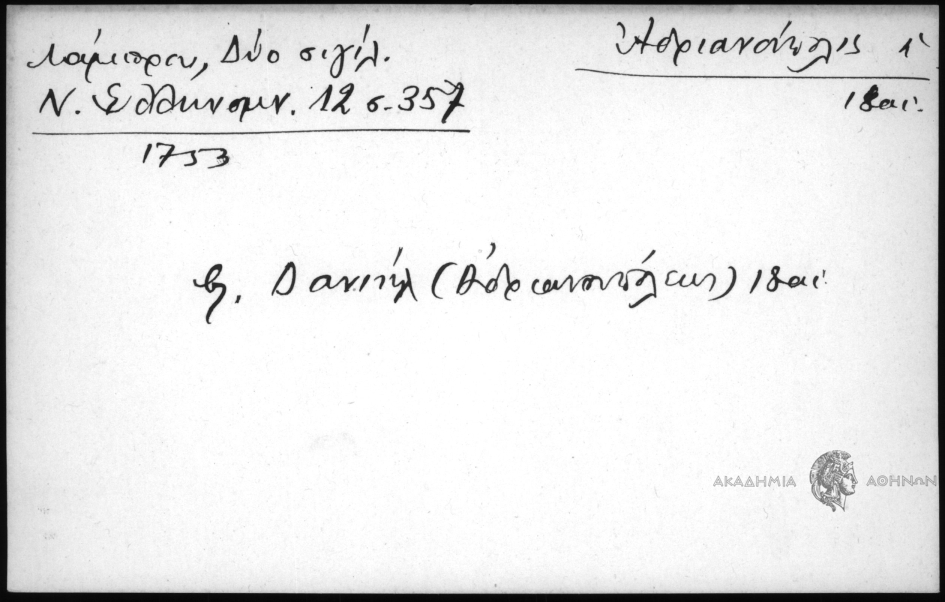 Λάμπρου, Δύο σιγίλ.
Ν. Ἑλληνομν. 12 σ. 357
1753
Ἀδριανούπολις 1
18 αἰ.
βλ. Δανιήλ (Ἀδριανουπόλεως) 18 αἰ.
ΑΚΑΔΗΜΙΑ ΑΘΗΝΩΝ